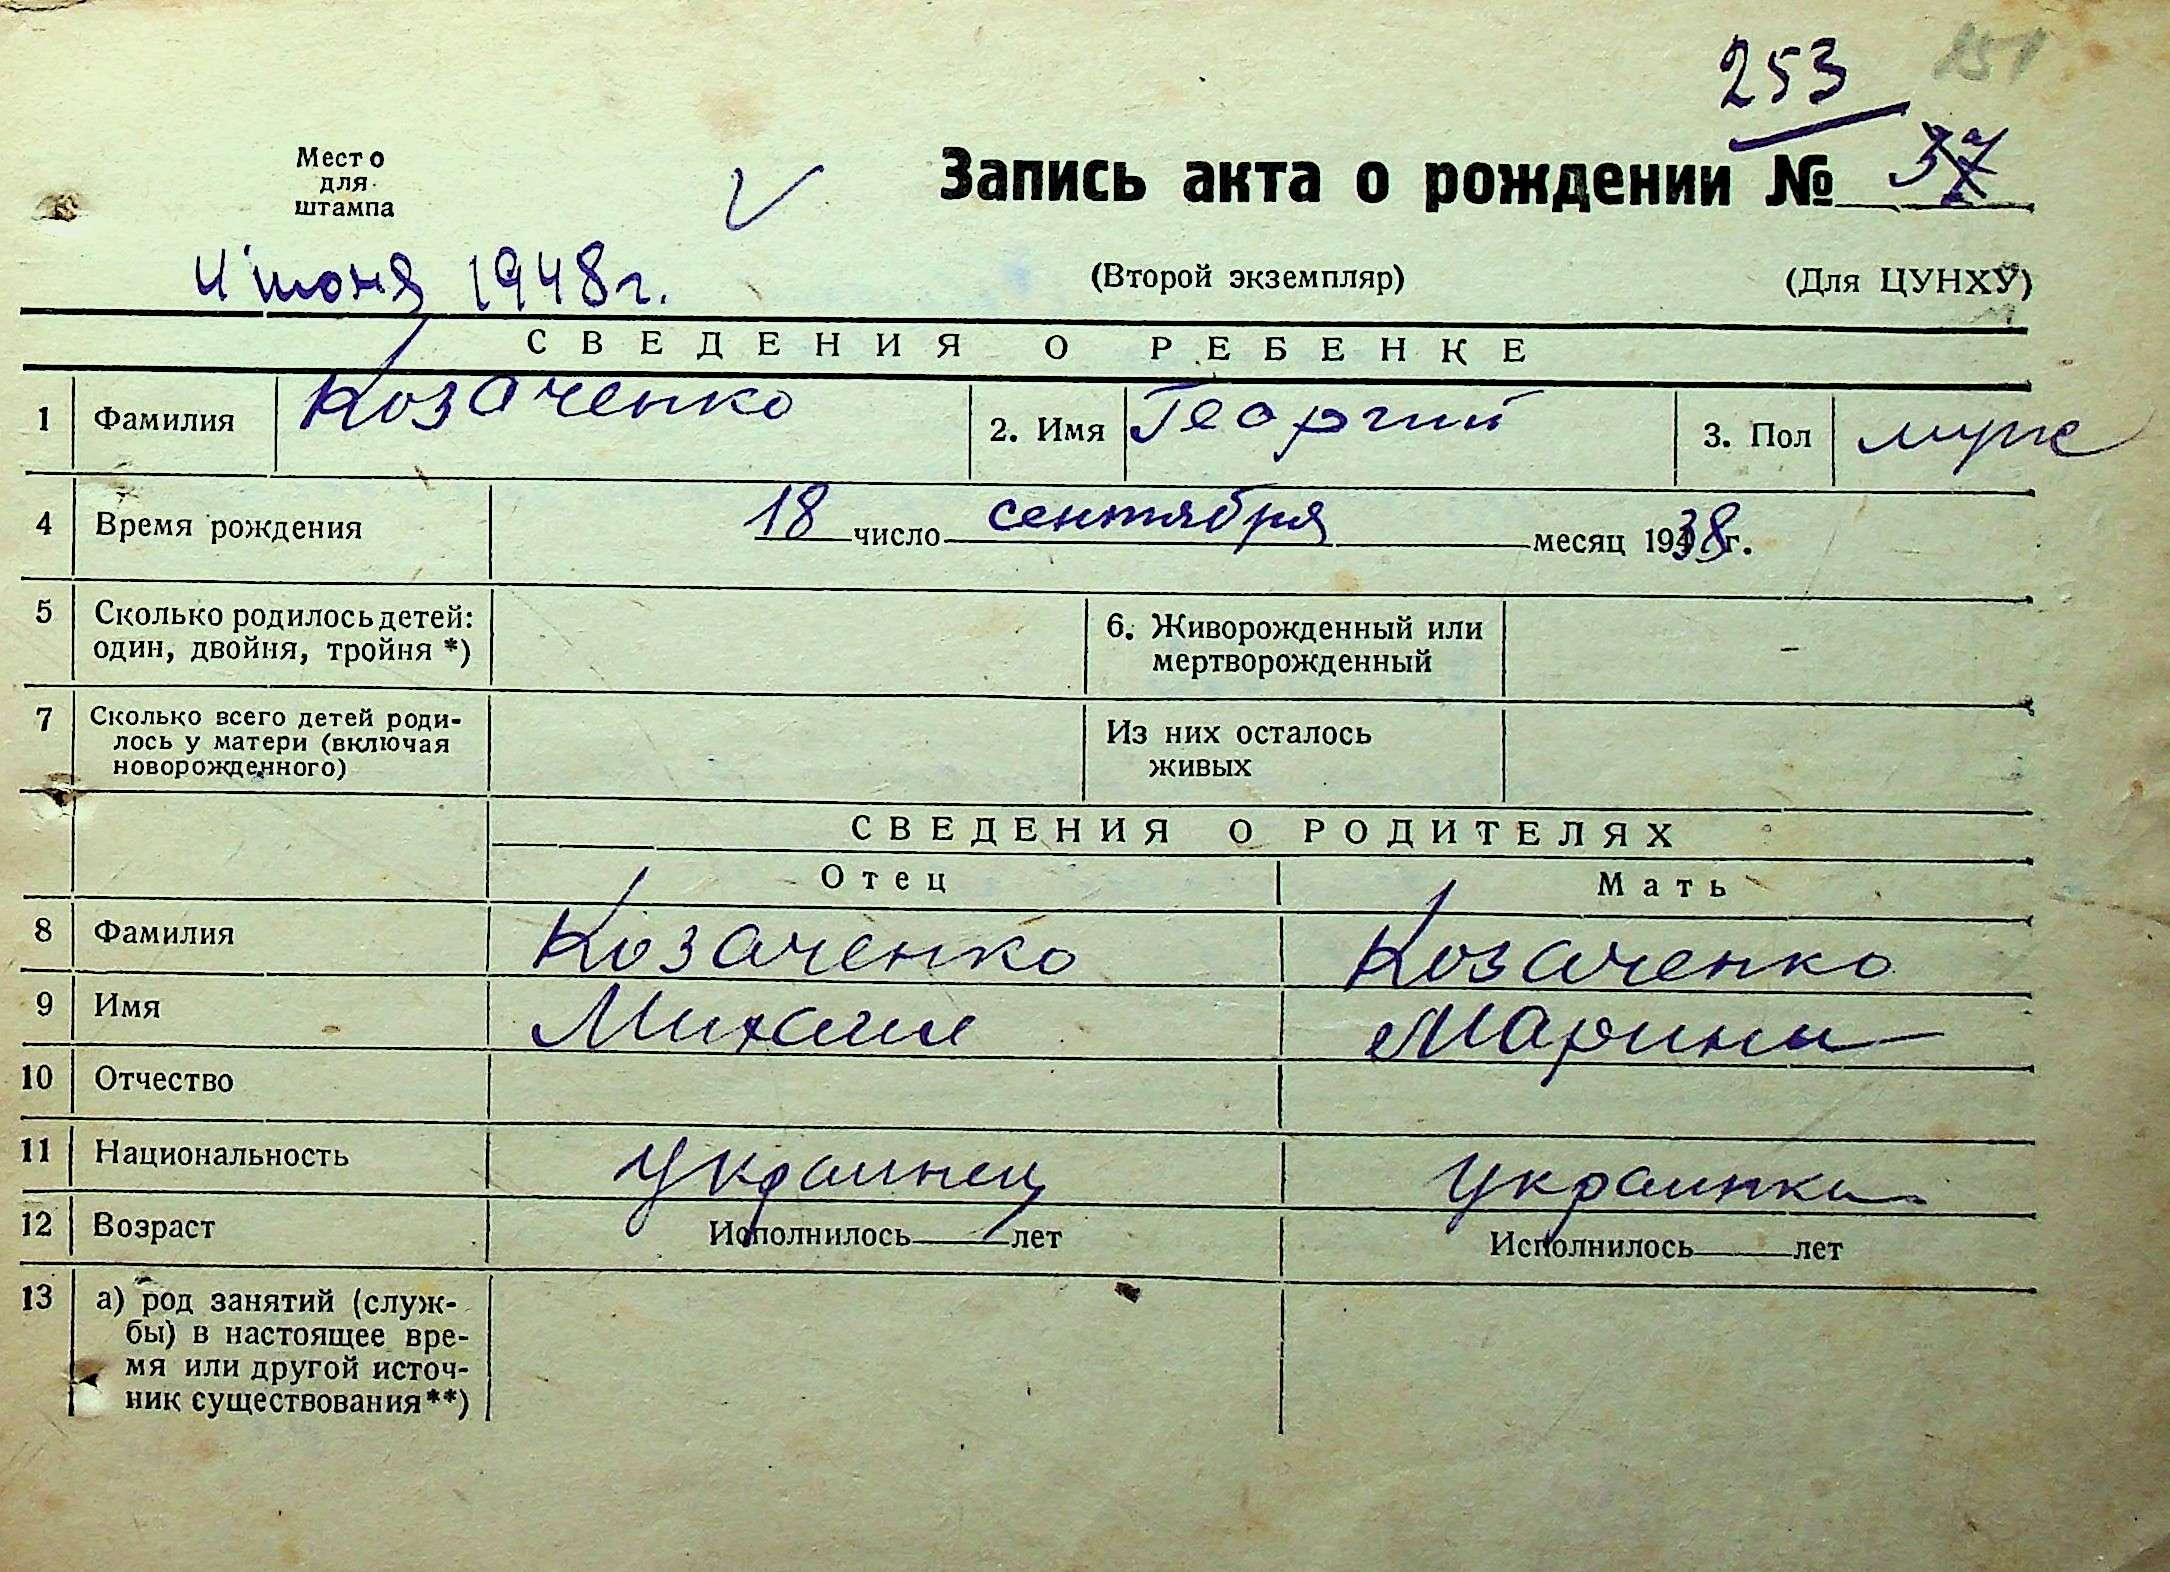 253 151
Место
для
штампа
Запись акта о рождении № 37
4 июня 1948 г.
(Второй экземпляр) (Для ЦУНХУ)
СВЕДЕНИЯ О РЕБЕНКЕ
1 Фамилия Козаченко 2. Имя Георгий 3. Пол муж
4 Время рождения 18 число сентября месяц 1938 г.
5 Сколько родилось детей:
один, двойня, тройня *)
6. Живорожденный или
мертворожденный
7 Сколько всего детей роди-
лось у матери (включая
новорожденного)
Из них осталось
живых
СВЕДЕНИЯ О РОДИТЕЛЯХ
Отец Мать
8 Фамилия Козаченко Козаченко
9 Имя Михаил Марина
10 Отчество
11 Национальность украинец украинка
12 Возраст Исполнилось лет Исполнилось лет
13 а) род занятий (служ-
бы) в настоящее вре-
мя или другой источ-
ник существования**)